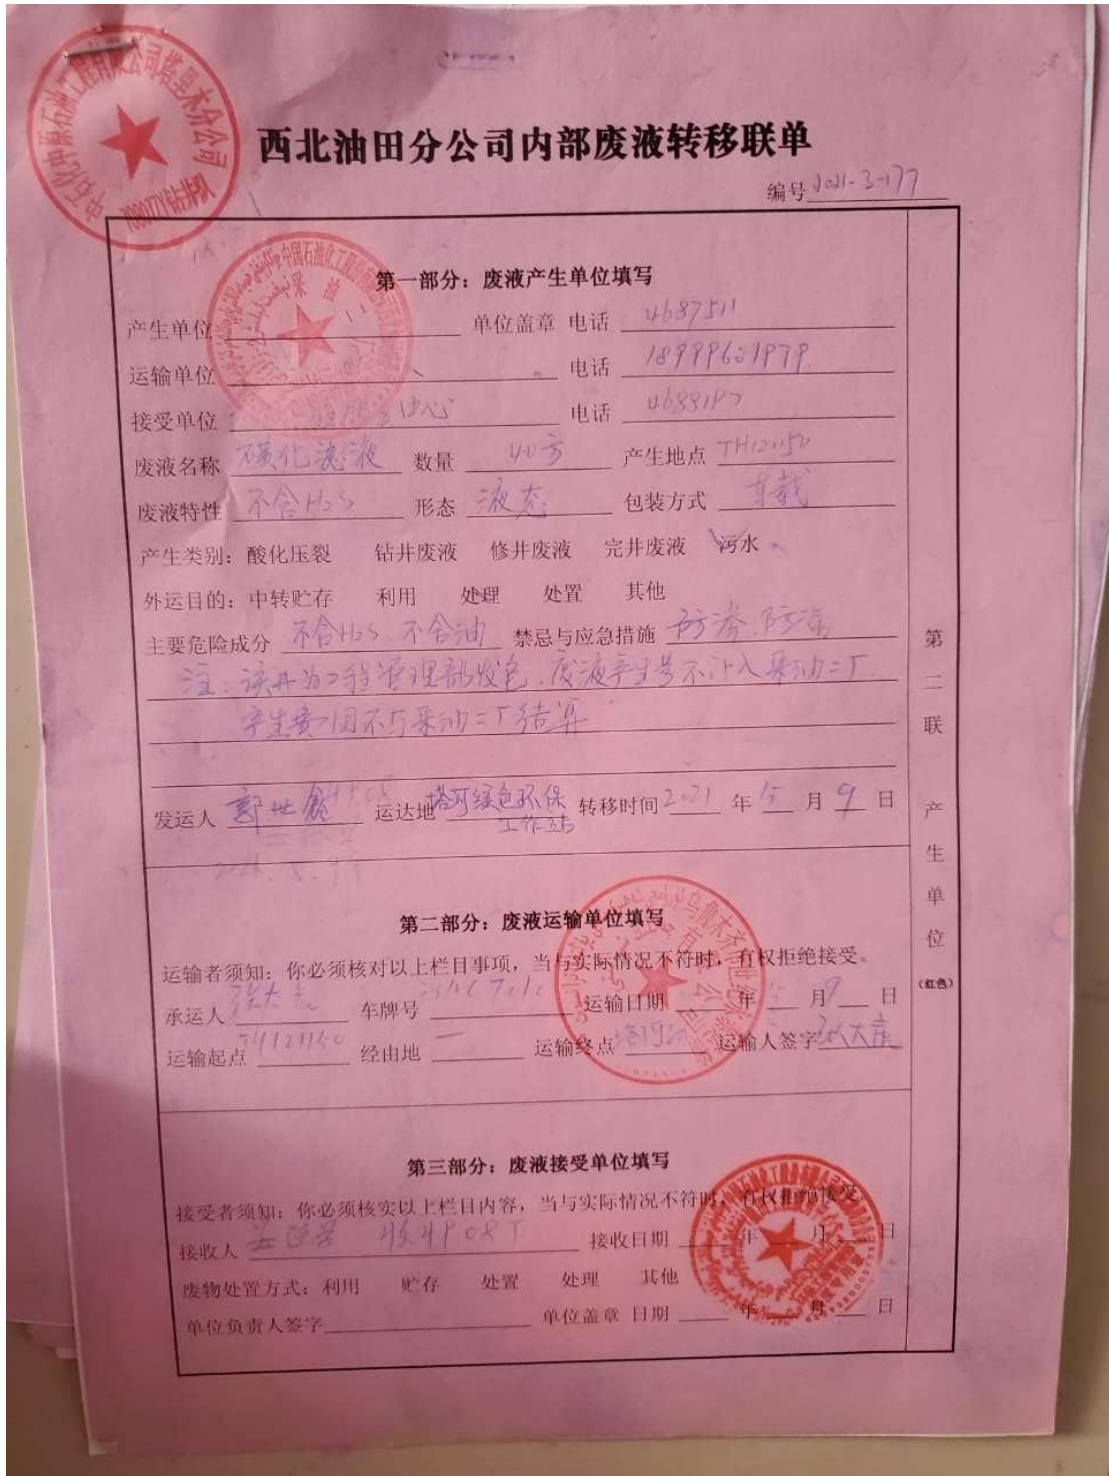 中石化中原石油工程有限公司塔里木分公司
70807ZY钻井队
西北油田分公司内部废液转移联单
编号 2021-3-177
第一部分：废液产生单位填写
产生单位 单位盖章 电话 4687511
运输单位 电话 18999621979
接受单位 中心 电话 4688197
废液名称 磺化滤液 数量 40方 产生地点 TH121150
废液特性 不含H2S 形态 液态 包装方式 车载
产生类别：酸化压裂 钻井废液 修井废液 完井废液 污水
外运目的：中转贮存 利用 处理 处置 其他
主要危险成分 不含H2S、不含油 禁忌与应急措施 防渗、防漏
注：该井为工程管理部发包，废液产生量不计入采油二厂，
产生费用不与采油二厂结算
发运人 郭世鑫 运达地 塔河绿色环保工作站 转移时间 2021 年 5 月 9 日
第二部分：废液运输单位填写
运输者须知：你必须核对以上栏目事项，当与实际情况不符时，有权拒绝接受。
承运人 车牌号 运输日期 年 5 月 9 日
运输起点 TH121150 经由地 — 运输终点 运输人签字
第三部分：废液接受单位填写
接受者须知：你必须核实以上栏目内容，当与实际情况不符时，有权拒绝接受。
接收人 收49.08T 接收日期 年 月 日
废物处置方式：利用 贮存 处置 处理 其他
单位负责人签字 单位盖章 日期 年 月 日
第二联 产生单位
（红色）